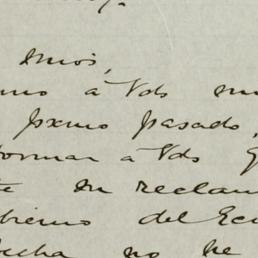 smios,
à Vds
pxmo pasado,
formar à Vds
te su reclam
bierno del Ecu
fecha no he